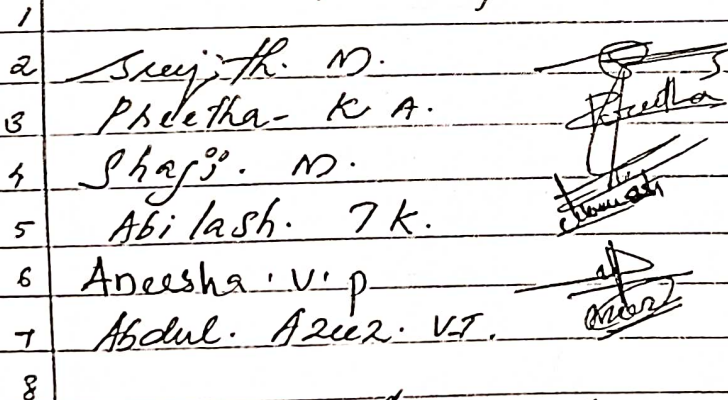 1
2 Sreejith. M.
3 Preetha- K A. Preetha
4 Shaji. M.
5 Abilash. T K.
6 Aneesha. V. P
7 Abdul. Azeez. V.T.
8